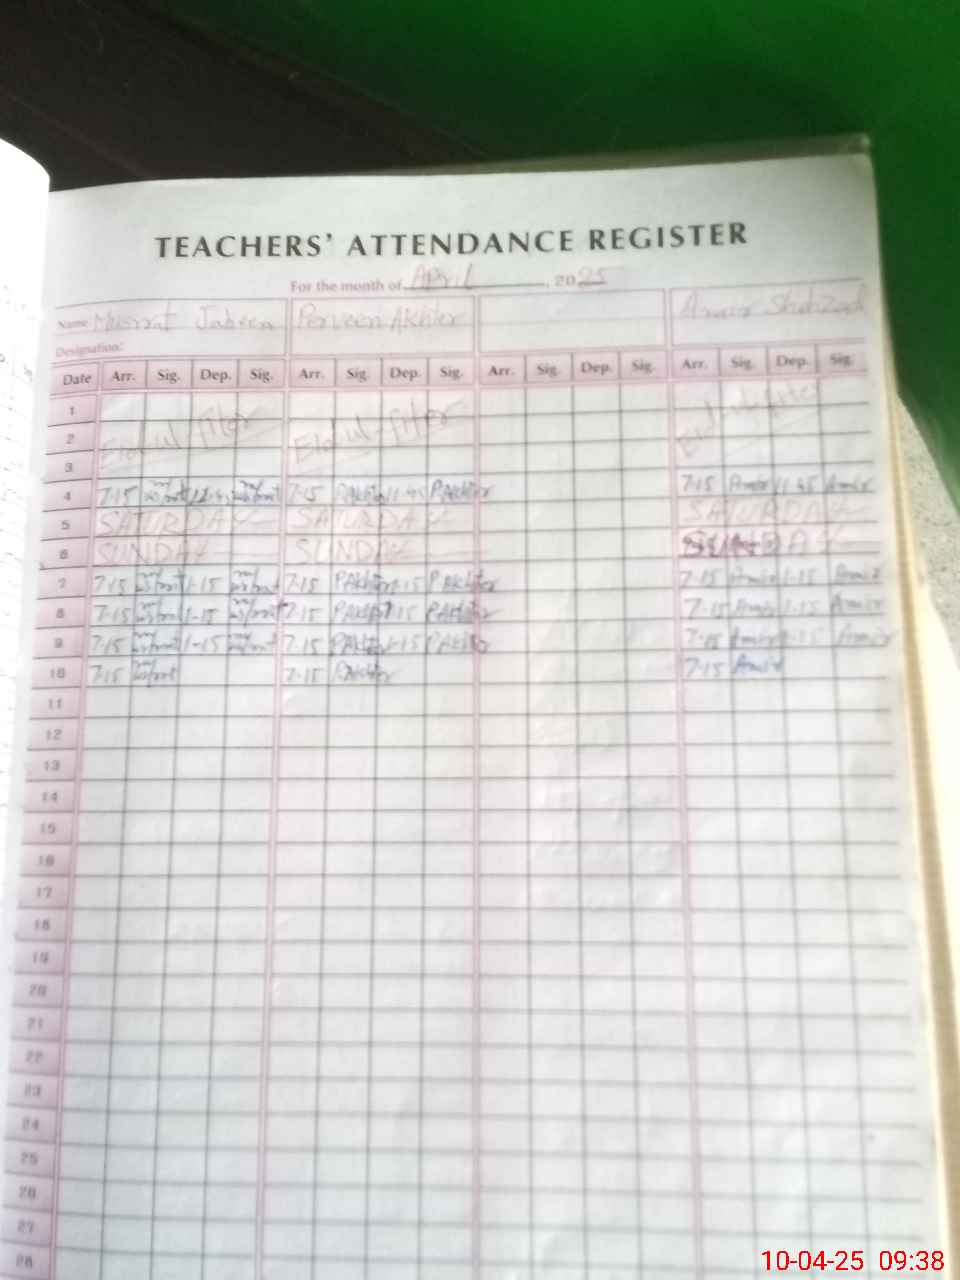 TEACHERS' ATTENDANCE REGISTER
For the month of April, 2025
Name: Musrrat Jabeen Perveen Akhter Amir Shahzad
Designation:
Date Arr. Sig. Dep. Sig. Arr. Sig. Dep. Sig. Arr. Sig. Dep. Sig. Arr. Sig. Dep. Sig.
1
2 Eid-ul-fiter Eid-ul-fiter Eid-ul-fiter
3
4 7-15 11-45 7-15 PAkhter 11-45 PAkhter 7-15 Amir 11-45 Amir
5 SATURDAY SATURDAY SATURDAY
6 SUNDAY SUNDAY
7 7-15 1-15 7-15 PAkhter 1-15 PAkhter 7-15 Amir 1-15 Amir
8 7-15 1-15 7-15 PAkhter 1-15 PAkhter 7-15 Amir 1-15 Amir
9 7-15 1-15 7-15 PAkhter 1-15 PAkhter 7-15 Amir 1-15 Amir
10 7-15 7-15 PAkhter 7-15 Amir
11
12
13
14
15
16
17
18
19
20
21
22
23
24
25
26
27
28
10-04-25 09:38